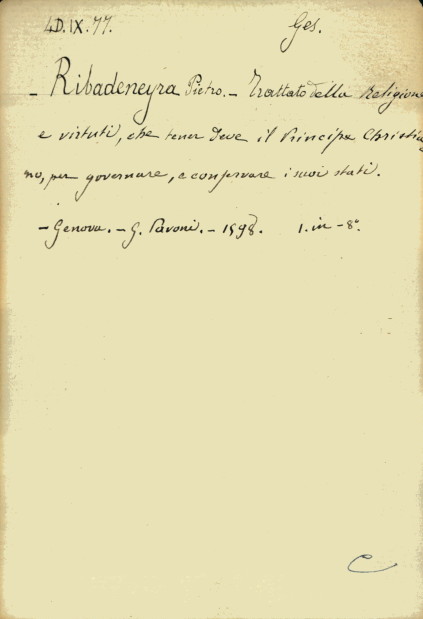 4D.IX.77. Ges.
- Ribadeneyra Pietro. - Trattato della religione
e virtuti, che tener deve il Principe Christia
no, per governare, e conservare i suoi stati.
- Genova. - G. Pavoni. - 1598. 1. in - 8°.
C